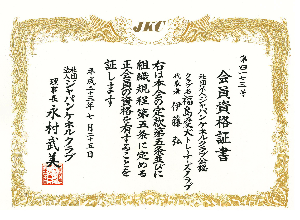 JKC
第四二三号
会員資格証書
社団法人ジャパンケネルクラブ公認
クラブ名 福島西愛犬トレーナーズクラブ
代表者 伊藤 弘
右は本会の定款第五条並びに
組織規程第五条に定める
正会員の資格を有することを
証します
平成二十六年 七月二十五日
社団法人ジャパンケネルクラブ
理事長 永村武美